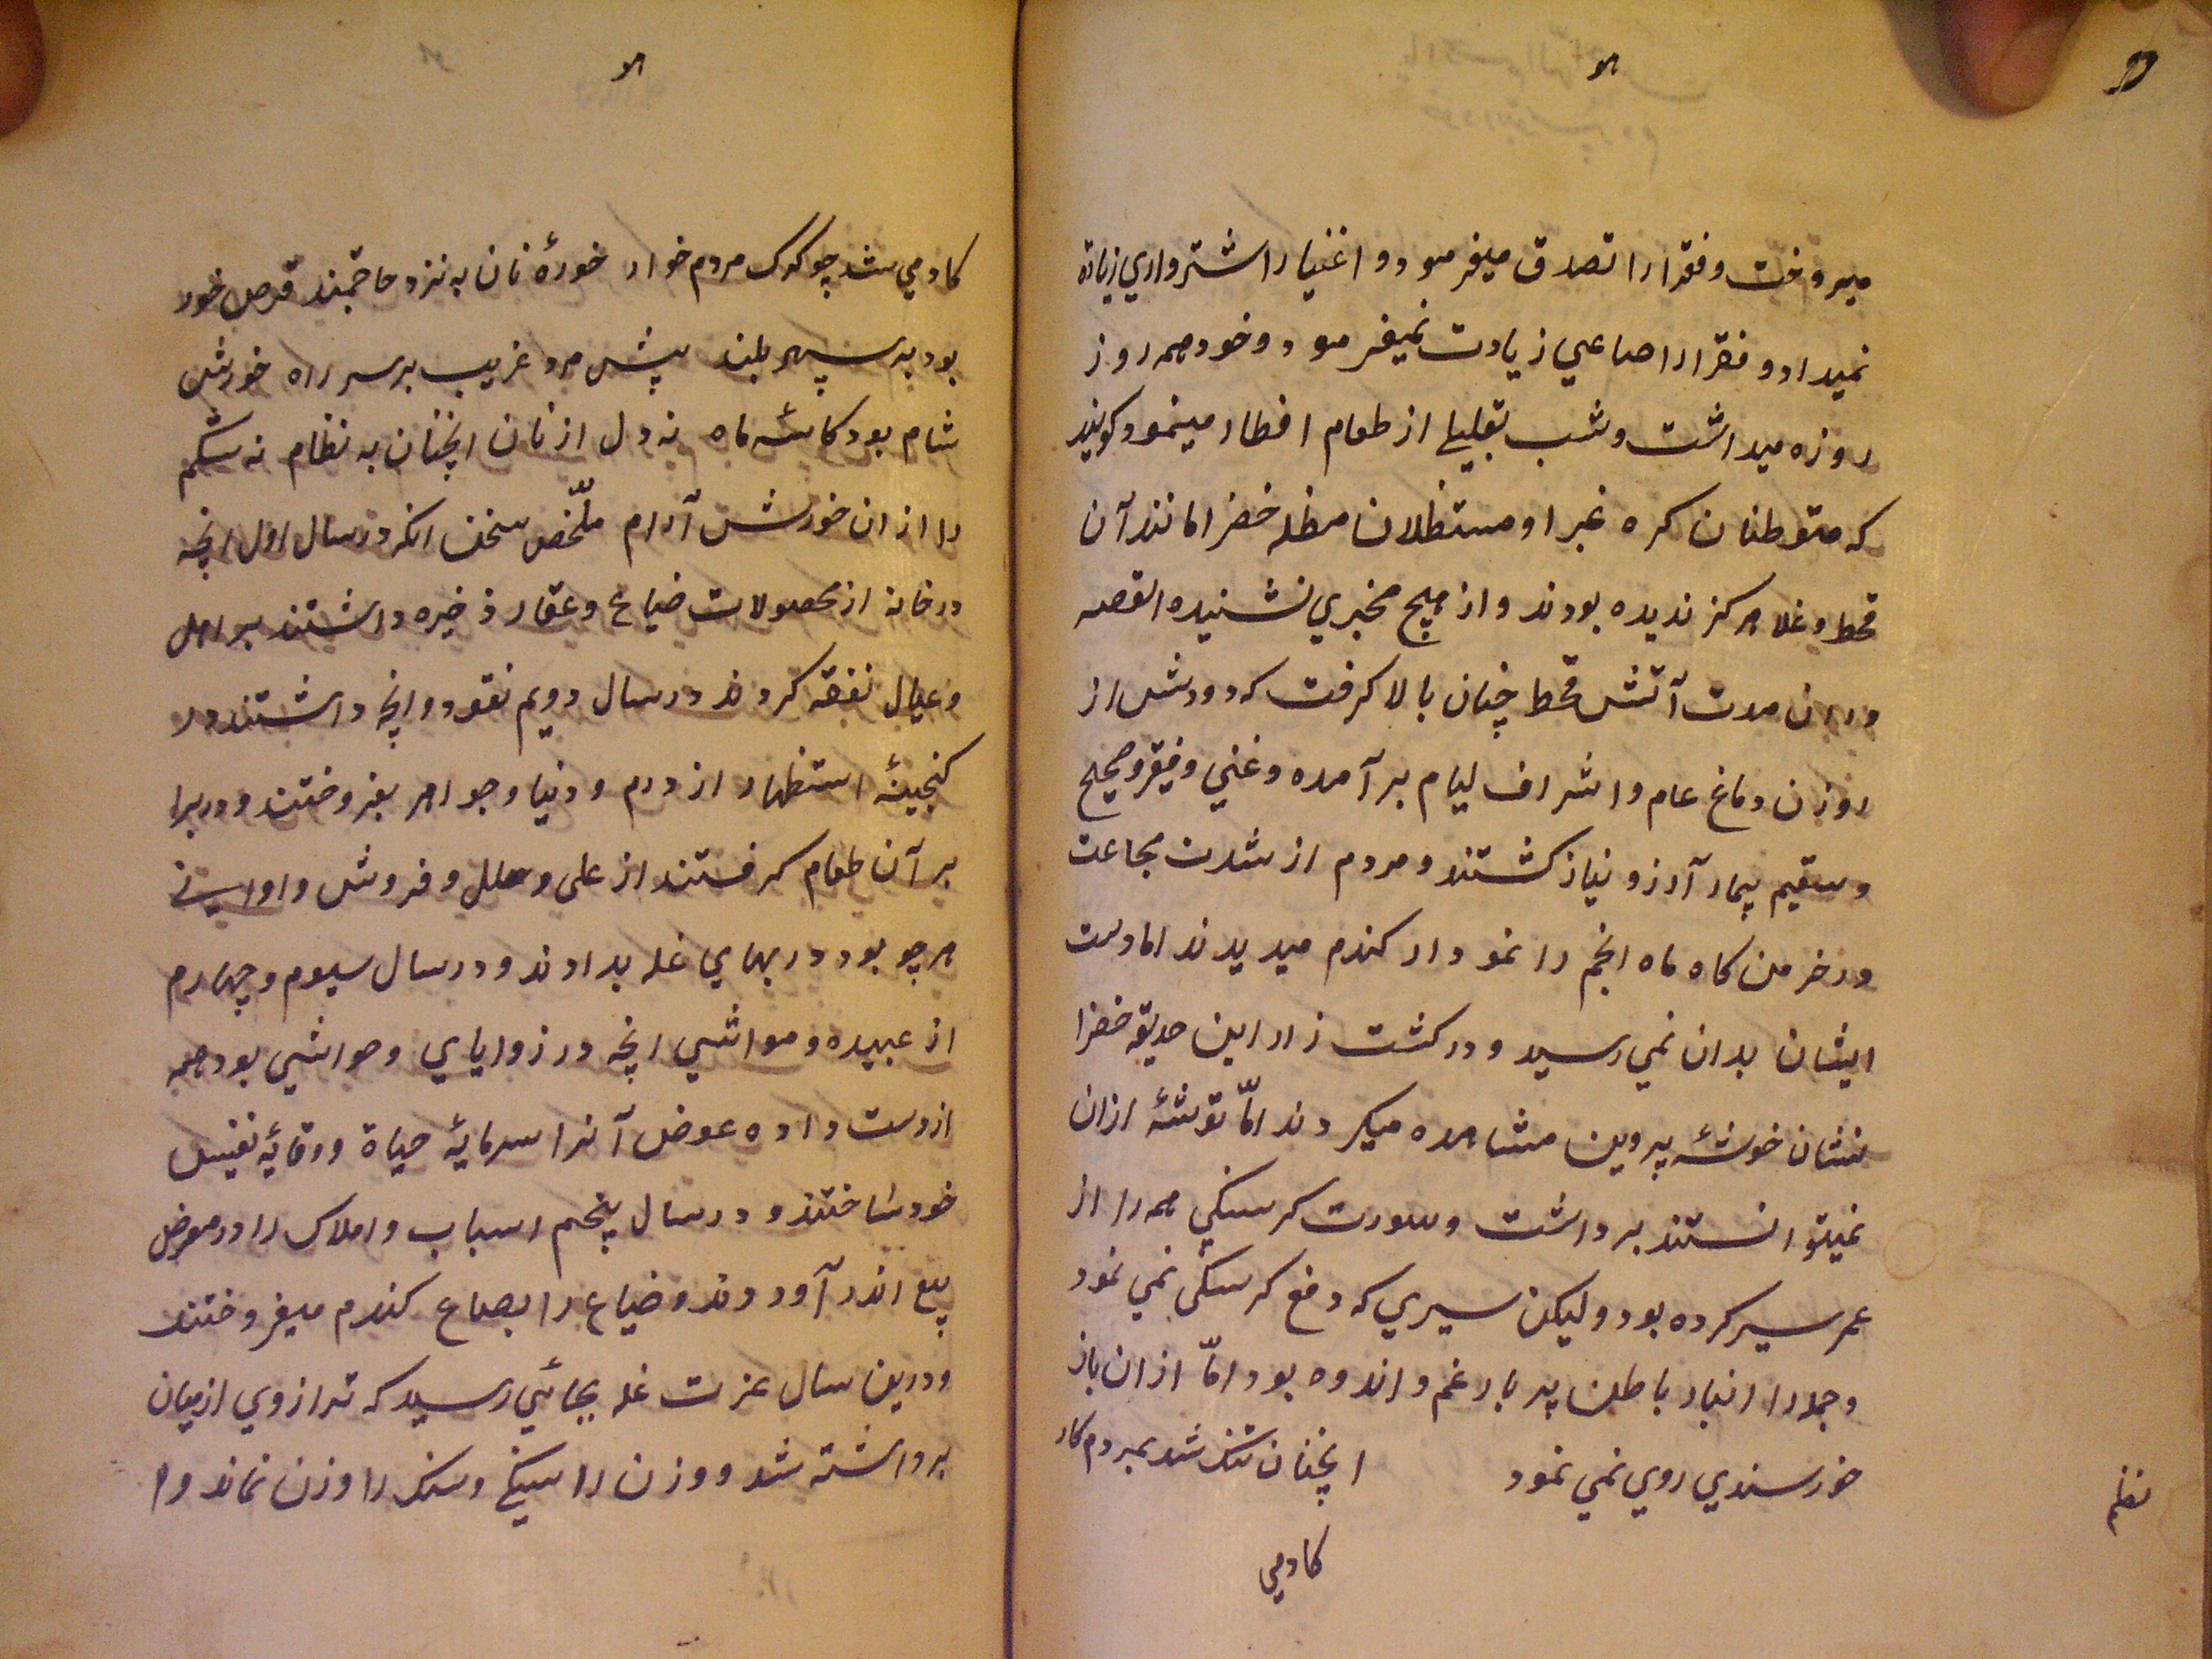 هو
میروخت و فقرا را تصدق میفرمود و اغنیا را اشترواری زیاده
نمیداد و فقرا را صاعی زیادت نمیفرمود و خود همه روز
روزه میداشت و شب بقلیلی از طعام افطار مینمود کویند
که متوطنان کره غبرا و مستظلان مظله خضرا مانند آن
قحط و غلا هرکز ندیده بودند و از هیچ مخبری نشنیده القصه
دران مدت آتش قحط چنان بالا کرفت که دودش از
روزن دماغ عام و اشراف لیام برآمده و غنی و فقیر و صحیح
و سقیم بیمار آرزو نیاز کشتند و مردم از شدت مجاعت
در خرمن کاه ماه انجم را نمودار کندم میدیدند اما دست
ایشان بدان نمی رسید و در کشت زار این حدیقه خضرا
نشان خوشهٔ پروین مشاهده میکردند امّا توشهٔ ازان
نمیتوانستند برداشت و سورت کرسنکی همه را از
عمر سیر کرده بود و لیکن سیری که دفع کرسنکی نمی نمود
و جمله را انبار باطن پر بار غم و اندوه بود امّا ازان باز
خورسندی روی نمی نمود اینچنان تنک شد بمردم کار
نظم
کادمی
هو
کادمی شد چو کرک مردم خوار خورهٔ نان به نزد حاجتمند قرص خور
بود بر سپهر بلند پیش مرد غریب بر سر راه خورش
شام بود کاسهٔ ماه نه دل از نان انچنان به نظام نه شکم
را ازان خورش آرام ملّخص سخن انکه در سال اول انچه
در خانه از محصولات ضیاع و عقار ذخیره داشتند بر اهل
و عیال نفقه کردند در سال دویم نقود و انچه داشتند در
کنجینهٔ استظهار از درم و دنیا و جواهر بفروختند و در برا
بر آن طعام کرفتند از حلی و حلل و فروش و اوانی
هر چو بود در بهای غله بدادند و در سال سیوم و چهارم
از عبیده و مواشی انچه در زوایای و حواشی بود همه
از دست داده عوض آنرا سرمایهٔ حیاة و وقایهٔ نفیس
خود ساختند و در سال پنجم اسباب و املاک را در معرض
بیع اندر آوردند و ضیاع را بصاع کندم میفروختند
و درین سال عزت غله بجائی رسید که ترازوی از میان
برداشته شد و وزن را سنکی و سنک را وزن نماند و ا